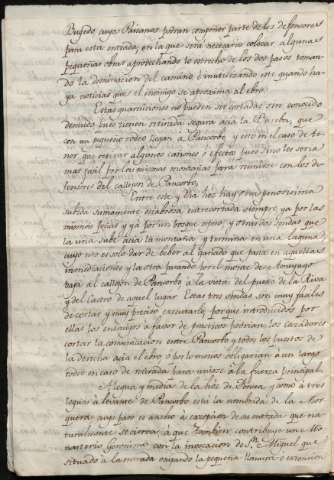 Bugedo cuyos Paisanos podran componer parte de los defensores
para esta entrada, en la que será necesario colocar alguna
pequeñas obras aprovechando lo estrecho de los dos pasos toman
do la dominacion del camino é inutilizando este quando ha
ya noticias que el enemigo se aproxima al ebro.
Estas guarniciones no pueden ser cortadas sin conocido
descuido pues tienen retirada segura acia la que
con un pequeño rodeo llegan á Pancorbo y esto en el caso de te
ner que retirar algunos cañones ó efectos pues sino les seria
mas facil por las mismas montañas para reunirse con los de
fensores del callejon de Pancorbo.
Entre este y hay otro
subida sumamente escabrosa, entrecortada siempre ya por las
enormes peñas y ya por un bosque espeso, y otras dos sendas que
la una sube acia la montaña y termina en una laguna
cuyo uso es solo dar de beber al ganado que pasta en aquellas
inmediaciones y la otra pasando por el monte de
baja al callejon de Pancorbo á la venta del puente de la
y del lado de aquel lugar. Estas tres sendas son muy faciles
de cortar y muy preciso executarlo, porque introducidos por
ellas los enemigos á pesar de precisos podrian los cazadores
cortar la comunicacion entre Pancorbo y todos los puestos de
la derecha acia el ebro ó por lo menos obligarian á un largo
rodeo en caso de retirada para unirse á la fuerza principal.
A legua y media de la hoz de y como á tres
leguas á levante de Pancorbo está la nombrada de la Mor
quera cuyo paso es ancho á excepcion de su entrada que na
turalmente se cierra á que tambien contribuye un Mo
nasterio Geronimo con la invocacion de S. Miguel que
situado á la entrada ocupando la pequeña llanura